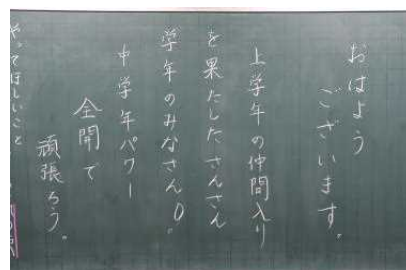 おはよう
ございます。
上学年の仲間入り
を果たしたさんさん
学年のみなさん
中学年パワー
全開で
頑張ろう。
やってほしいこと